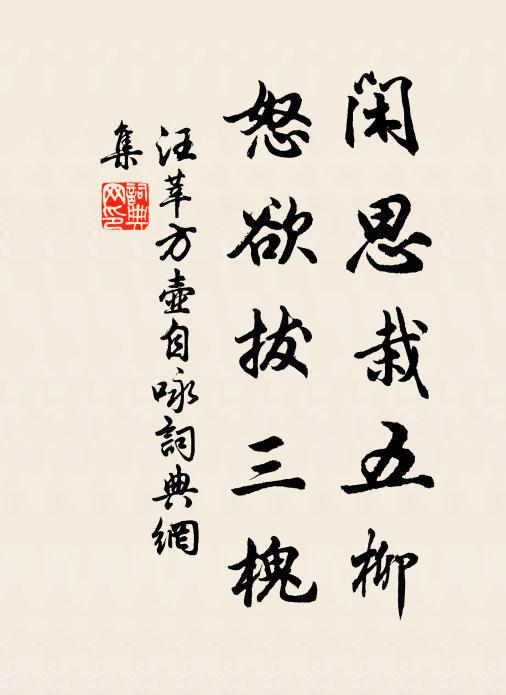 闲思栽五柳
怒欲拔三槐
汪莘方壶自咏詞典網
集
詞典网印